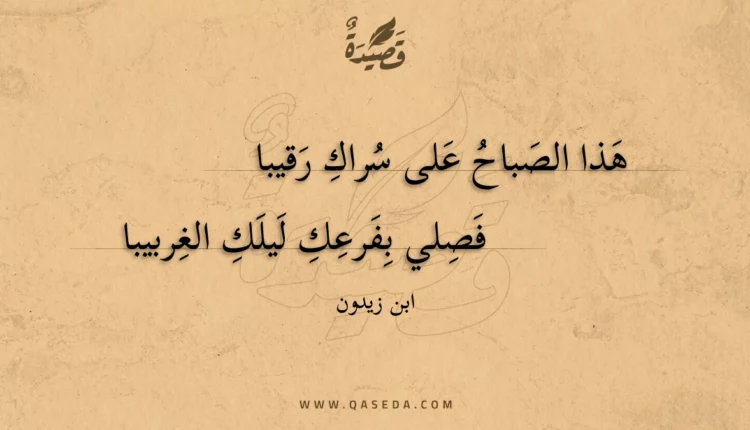 قَصِيْدَةٌ
هَذا الصَباحُ عَلى سُراكِ رَقيبا
فَصِلي بِفَرعِكِ لَيلَكِ الغِربيبا
ابن زيدون
WWW.QASEDA.COM